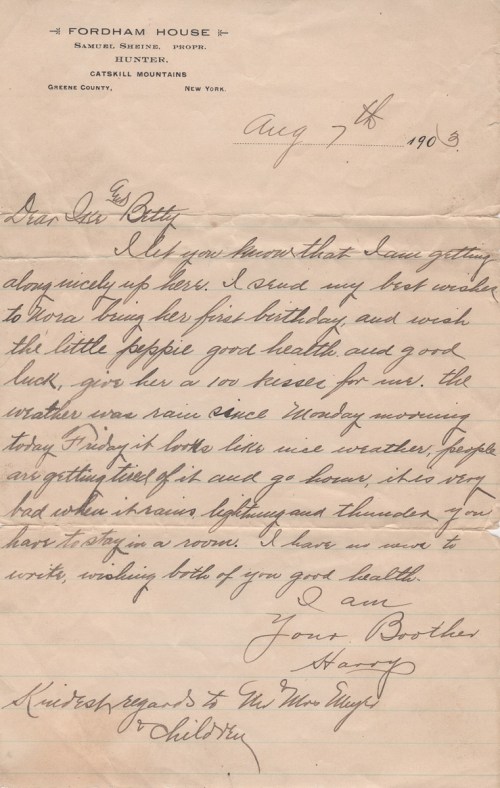 FORDHAM HOUSE
SAMUEL SHEINE. PROPR.
HUNTER.
CATSKILL MOUNTAINS
GREENE COUNTY, NEW YORK.
Aug 7th 1903
Dear Ike and Betty
I let you know that I am getting
along nicely up here. I send my best wishes
to Nora being her first birthday, and wish
the little peppie good health and good
luck, give her a 100 kisses for me. the
weather was rain since Monday morning
today Friday it looks like nise weather, people
are getting tired of it and go home, it is very
bad when it rains, lightning and thunder you
have to stay in a room. I have no more to
write, wishing both of you good health.
I am
Your Boother
Harry
Kindest regards to Mr Mrs
& children